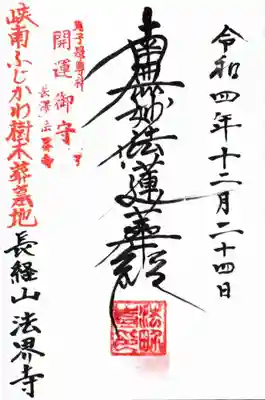 令和四年十二月二十四日
南無妙法蓮華経
開運御守
峡南ふじかわ樹木葬墓地
長経山 法界寺